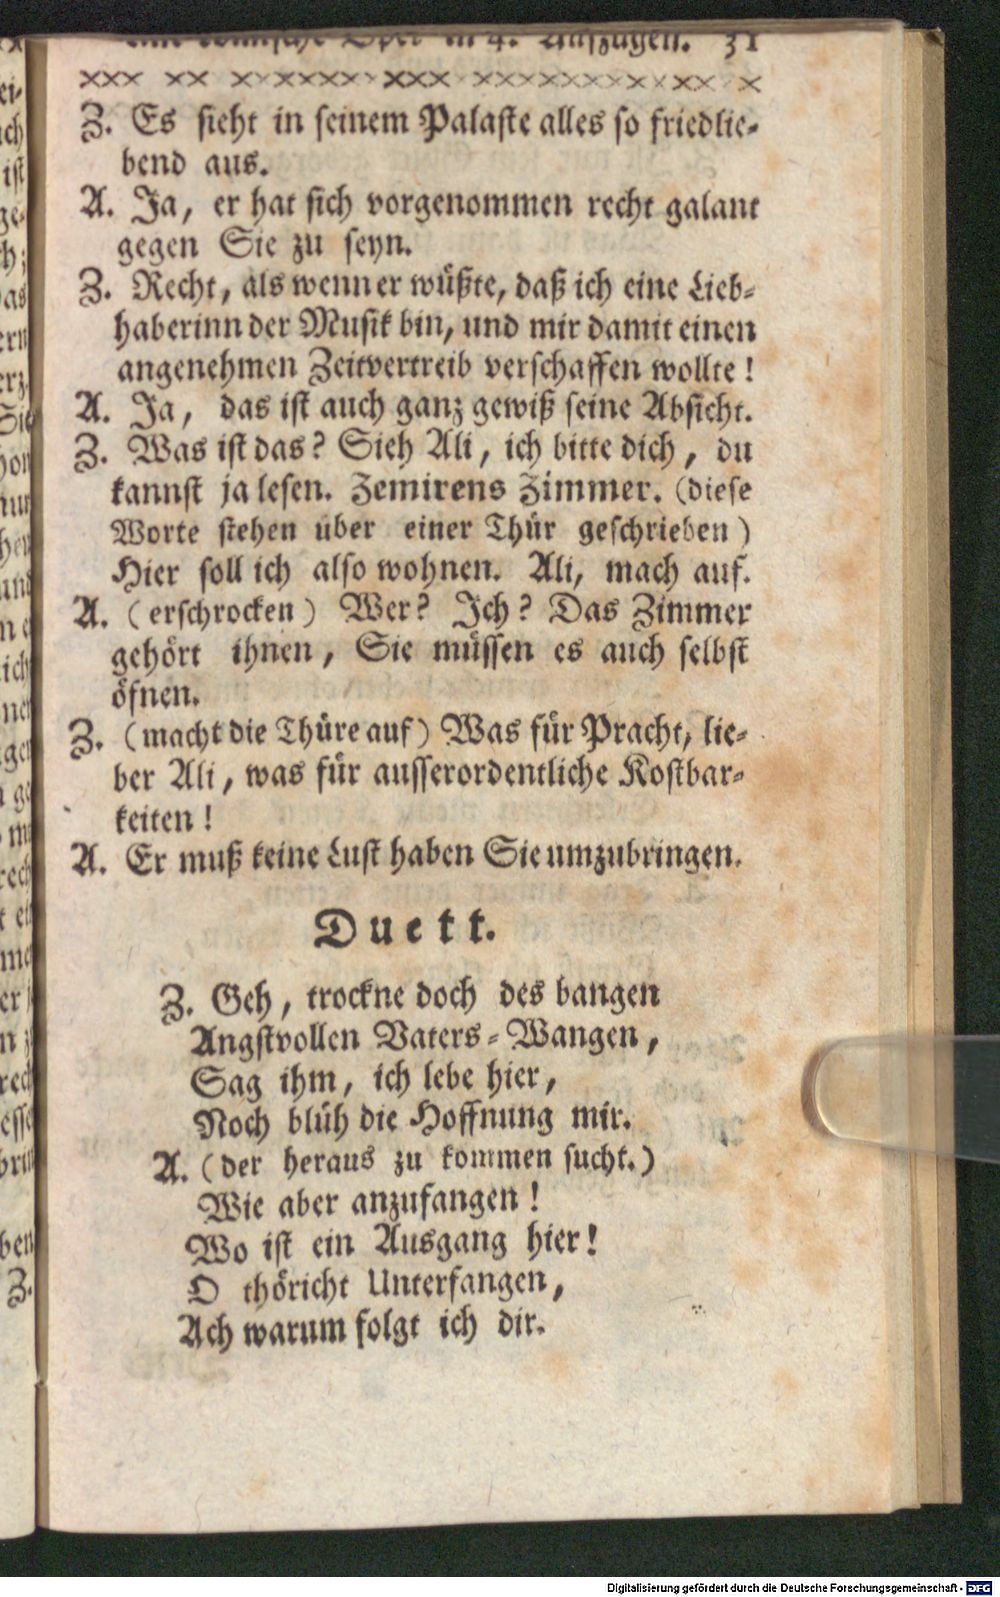 eine komische Oper in 4. Aufzügen. 31
××× ×× ×××××××× ××× ××××××××××× ×
Z. Es sieht in seinem Palaste alles so friedlie-
bend aus.
A. Ja, er hat sich vorgenommen recht galant
gegen Sie zu seyn.
Z. Recht, als wenn er wüßte, daß ich eine Lieb-
haberinn der Musik bin, und mir damit einen
angenehmen Zeitvertreib verschaffen wollte!
A. Ja, das ist auch ganz gewiß seine Absicht.
Z. Was ist das? Sieh Ali, ich bitte dich, du
kannst ja lesen. Zemirens Zimmer. (diese
Worte stehen über einer Thür geschrieben)
Hier soll ich also wohnen. Ali, mach auf.
A. (erschrocken) Wer? Ich? Das Zimmer
gehört ihnen, Sie müssen es auch selbst
öfnen.
Z. (macht die Thüre auf) Was für Pracht, lie-
ber Ali, was für ausserordentliche Kostbar-
keiten!
A. Er muß keine Lust haben Sie umzubringen.
Duett.
Z. Geh, trockne doch des bangen
Angstvollen Vaters-Wangen,
Sag ihm, ich lebe hier,
Noch blüh die Hoffnung mir.
A. (der heraus zu kommen sucht.)
Wie aber anzufangen!
Wo ist ein Ausgang hier!
O thöricht Unterfangen,
Ach warum folgt ich dir.
Digitalisierung gefördert durch die Deutsche Forschungsgemeinschaft - DFG